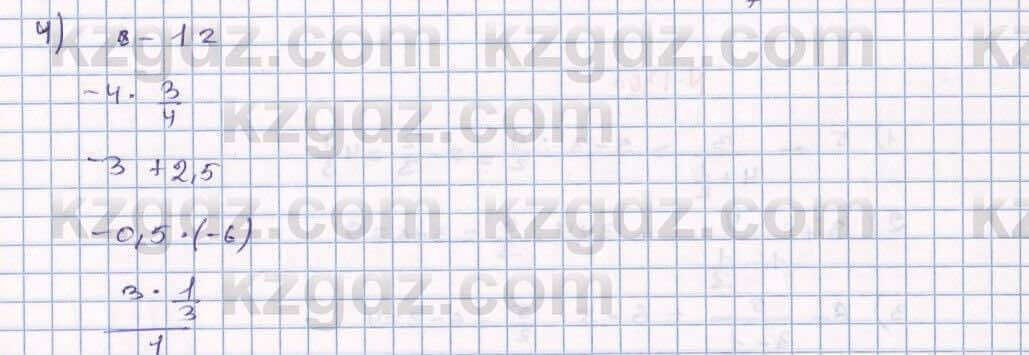 4) 8 - 12
-4 · 3/4
-3 + 2,5
-0,5 · (-6)
3 · 1/3
1
kzgdz.com kzgdz.com kz
kzgdz.com
kzgdz.com kzgdz.com kz
kzgdz.com